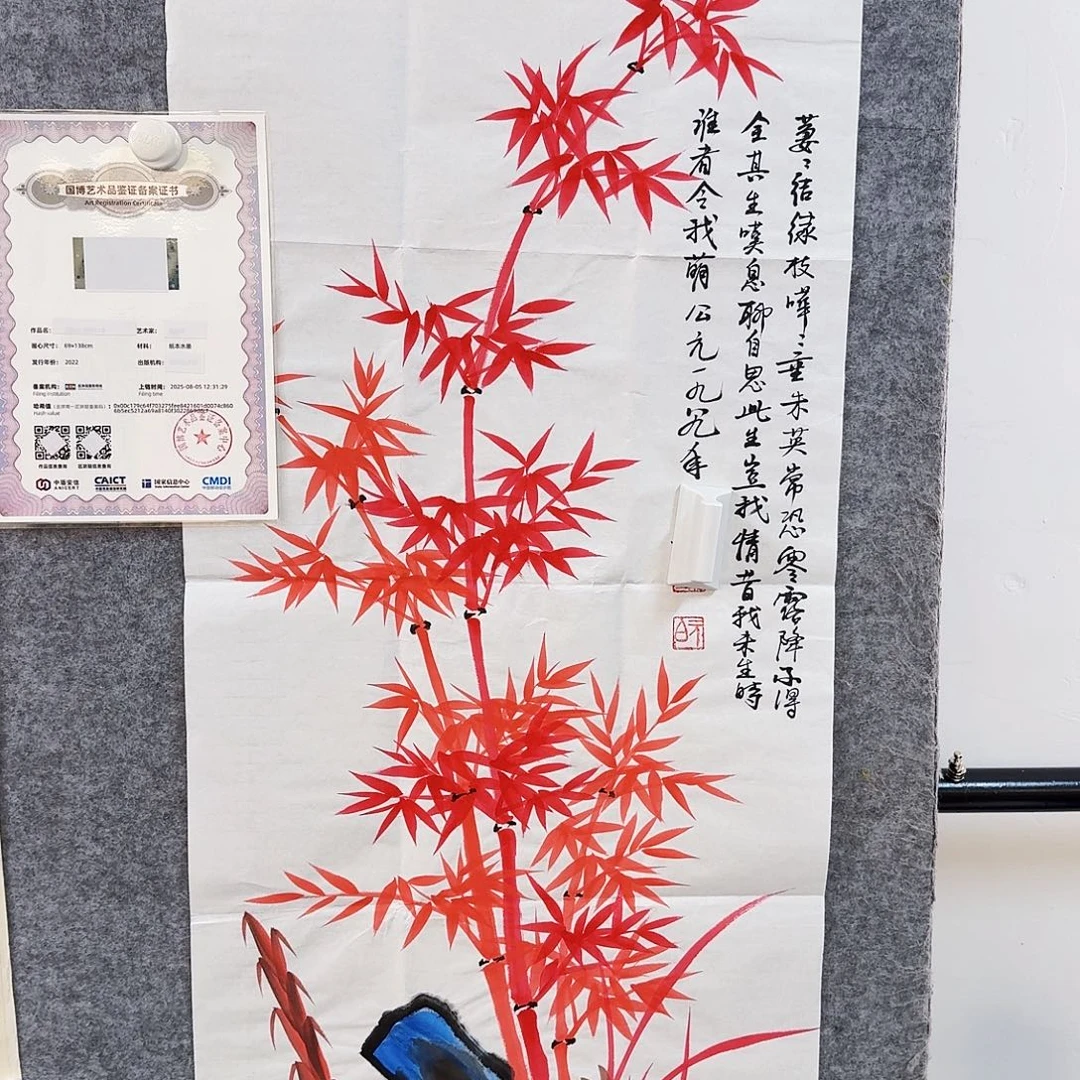 萋〻结绿枝晔〻垂朱英常恐零露降不得
全其生嘆息聊自思此生岂我情昔我未生時
谁者令我萌公元一九九年
国博艺术品鉴证备案证书
Art Registration Certificate
作品名:
艺术家:
画心尺寸: 69×138cm
材料: 纸本水墨
发行年份: 2022
出版机构:
备案机构:
Filing institution
上链时间: 2025-08-05 12:31:29
Filing time
哈希值
Hash value
作品信息查询
区块链信息查询
中国安信
ANICERT
CAICT
国家信息中心
State Information Center
CMDI